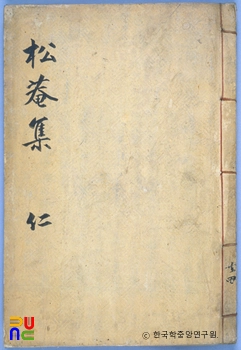 松菴集 仁
共四
ⓒ 한국학중앙연구원